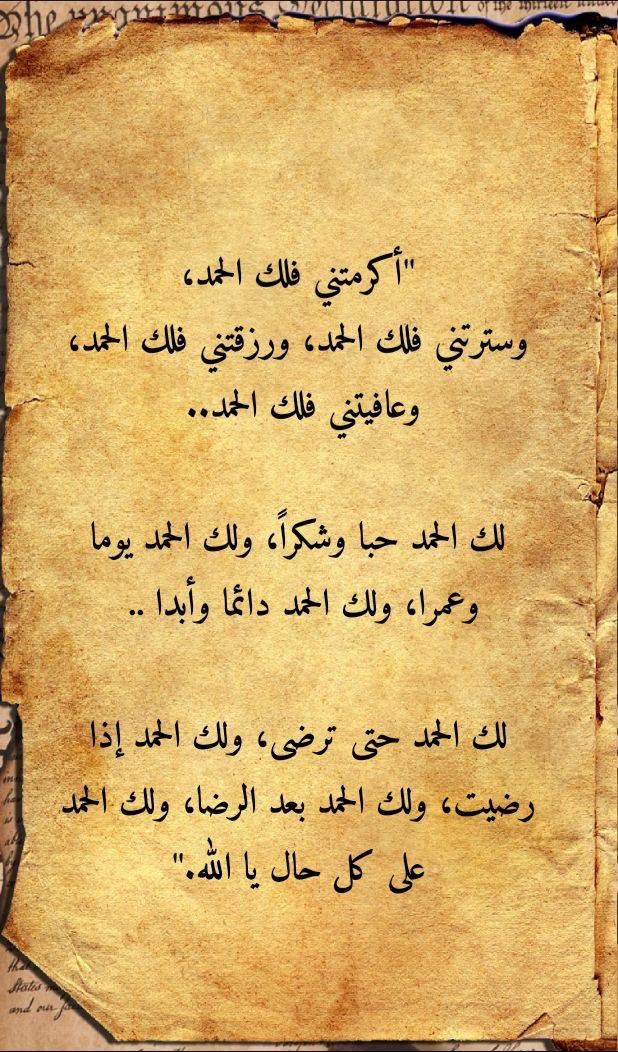 The unanimous Declaration of the thirteen united
"أكرمتني فلك الحمد،
وسترتني فلك الحمد، ورزقتني فلك الحمد،
وعافيتني فلك الحمد..
لك الحمد حبا وشكراً، ولك الحمد يوما
وعمرا، ولك الحمد دائما وأبدا ..
لك الحمد حتى ترضى، ولك الحمد إذا
رضيت، ولك الحمد بعد الرضا، ولك الحمد
على كل حال يا الله."
that
States
and our